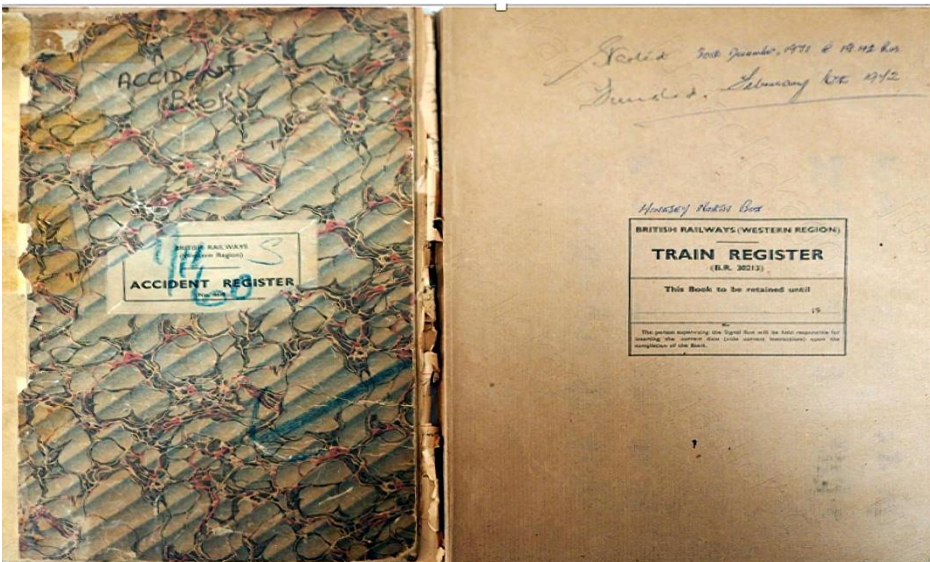 ACCIDENT
BOOK
BRITISH RAILWAYS
(Western Region)
S
ACCIDENT REGISTER
Started 30th December, 1971 @ 18.42 hrs
Finished. February 10th 1972
HINKSEY NORTH BOX
BRITISH RAILWAYS (WESTERN REGION)
TRAIN REGISTER
(B.R. 30213)
This Book to be retained until
19
The person supervising the Signal Box will be held responsible for
inserting the correct date (vide current Instructions) upon the
completion of the Book.